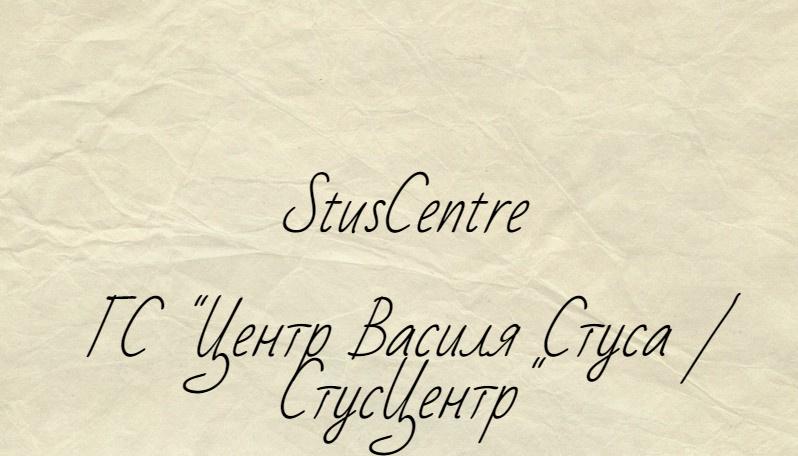 StusCentre
ГС “Центр Василя Стуса /
СтусЦентр”